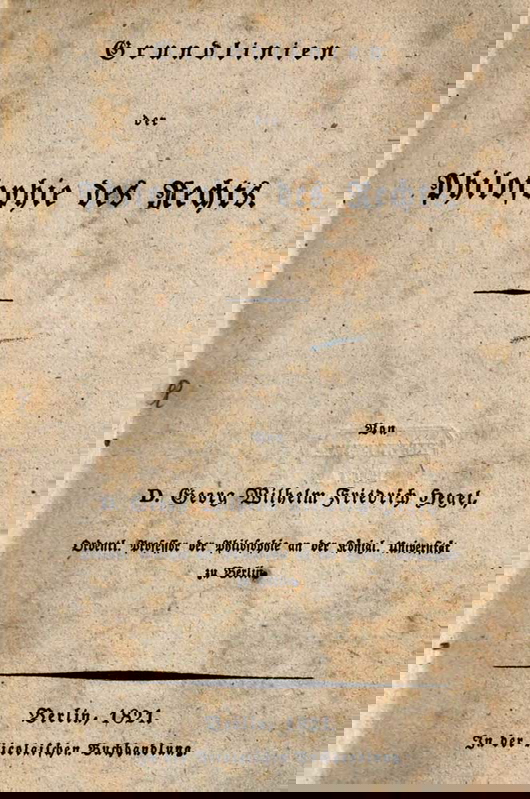 Grundlinien
der
Philosophie des Rechts.
Von
D. Georg Wilhelm Friedrich Hegel,
Ordentl. Professor der Philosophie an der Königl. Universität
zu Berlin.
Berlin, 1821.
In der Nicolaischen Buchhandlung.